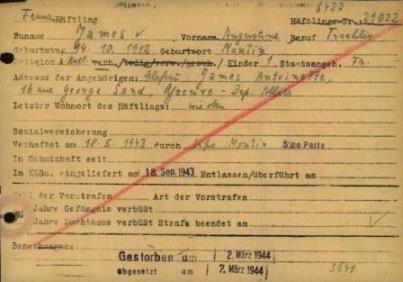 6422
Franz. Häftling Häftlings-Nr. 21022
Zuname James Vorname Augustine Beruf Tischler
Geburtstag 24. 10. 1912 Geburtsort
Religion r. Kath. verh./ledig/verw./gesch./ Kinder 1 Staatsangeh. Fr.
Adresse der Angehörigen: James Antoinette,
16 rue George Sand, Yzeure - Dep. Allier
Letzter Wohnort des Häftlings: wie oben
Sozialversicherung
Verhaftet am 18.5.1943 durch Sipo Paris
In Schutzhaft seit
Im KLBu. eingeliefert am 18. Sep. 1943 Entlassen/überführt am
Zahl der Vorstrafen Art der Vorstrafen
Jahre Gefängnis verbüßt
Jahre Zuchthaus verbüßt Strafe beendet am
Bemerkungen:
Gestorben am 2. März 1944
abgesetzt am 2. März 1944